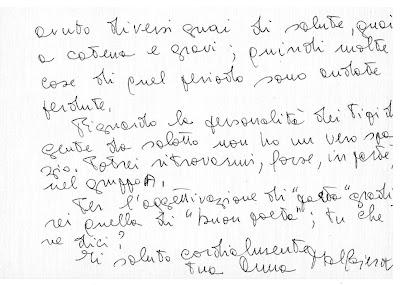 avuto diversi guai di salute, guai
a catena e gravi; quindi molte
cose di quel periodo sono andate
perdute.
Riguardo la personalità dei Tigi di
gente da salotto non ho un vero spa
zio. Potrei ritrovarmi, forse, in parte,
nel gruppo A.
Per l'aggettivazione di "poeta" gradi
rei quella di "buon poeta"; tu che
ne dici?
Ti saluto cordialmente
tua Anna